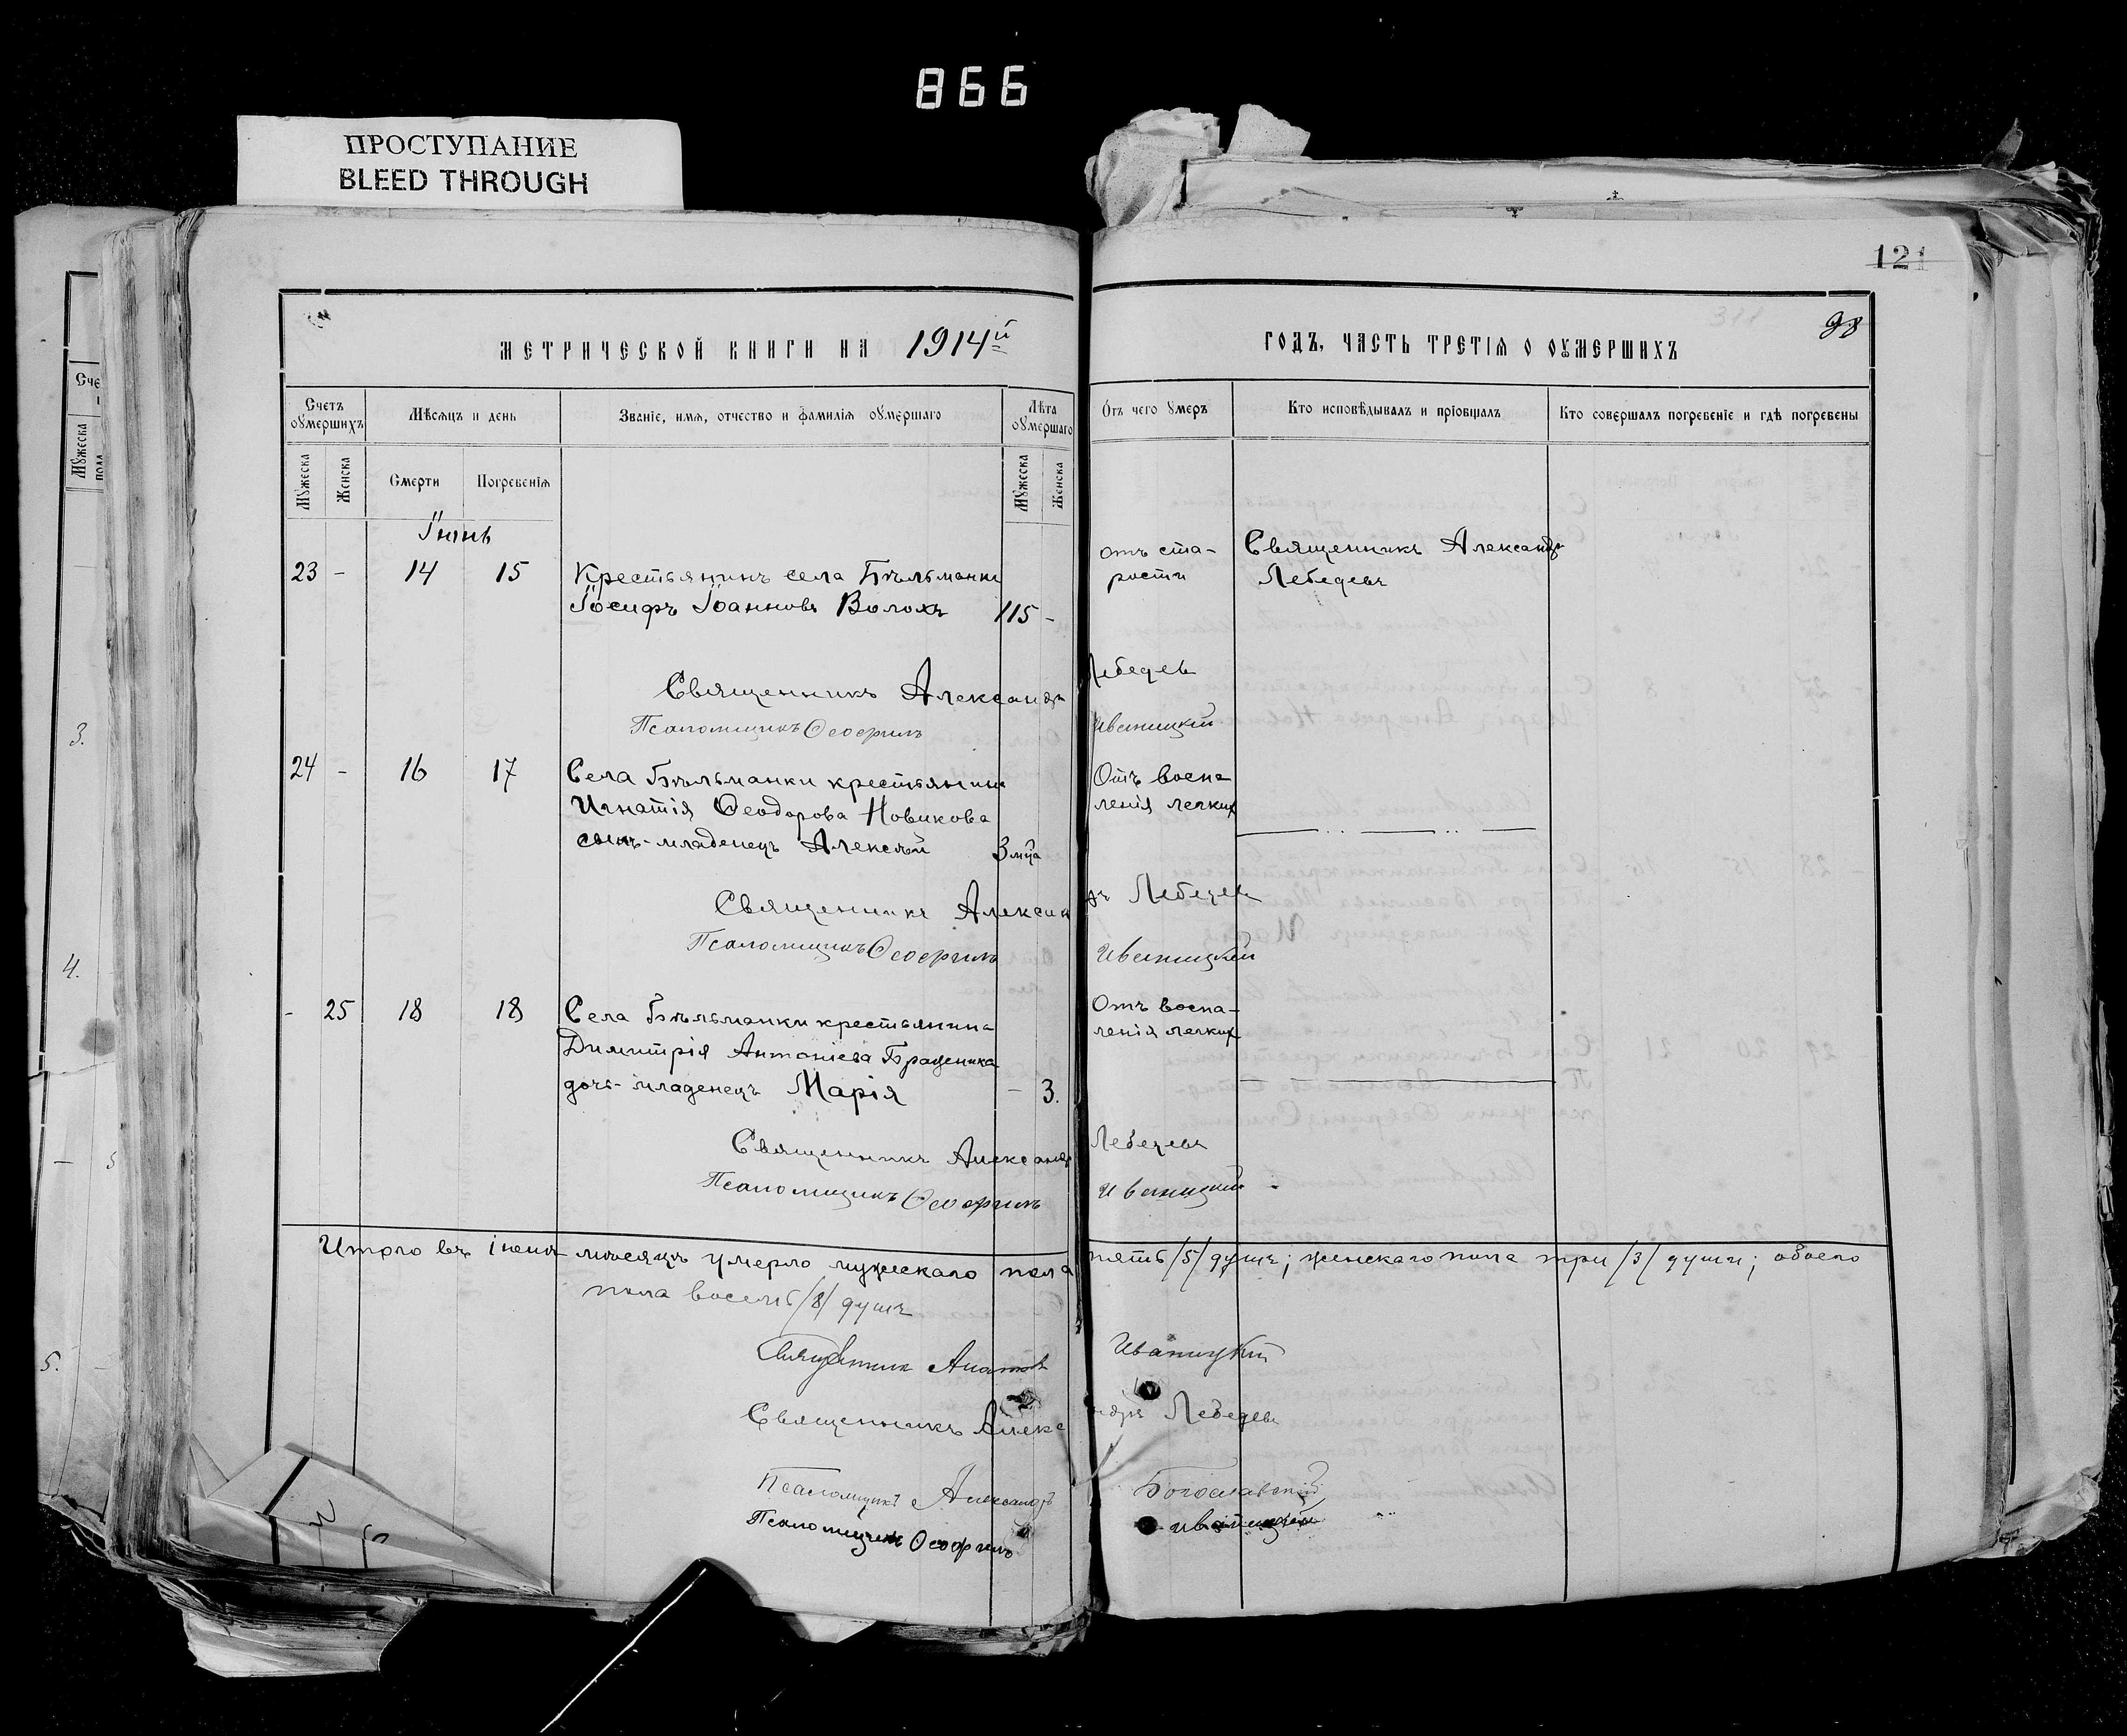 866
ПРОСТУПАНИЕ
BLEED THROUGH
121
98
МЕТРИЧЕСКОЙ КНИГИ НА 1914й ГОДЪ, ЧАСТЬ ТРЕТІЯ О ОУМЕРШИХЪ
Счетъ оумершихъ
Мѣсяцъ и день
Званіе, имя, отчество и фамилія оумершаго
Лѣта оумершаго
Отъ чего умеръ
Кто исповѣдывалъ и пріобщалъ
Кто совершалъ погребеніе и гдѣ погребены
Мужеска
Женска
Смерти
Погребенія
Мужеска
Женска
Іюнь
23 - 14 15 Крестьянинъ села Бѣльманки
Іосифъ Іоанновъ Волохъ 115 -
отъ ста-
рости
Священникъ Александръ
Лебедевъ
Священникъ Александръ Лебедевъ
Псаломщикъ Ѳеофилъ Иваницкій
24 - 16 17 Села Бѣльманки крестьянина
Игнатія Ѳеодорова Новикова
сынъ-младенецъ Алексѣй 3 мца
Отъ воспа
ленія легкихъ
Священникъ Александръ Лебедевъ
Псаломщикъ Ѳеофилъ Иваницкій
- 25 18 18 Села Бѣльманки крестьянина
Димитрія Антоніева Браценика
дочь-младенецъ Марія - 3.
Отъ воспа-
ленія легкихъ
Священникъ Александръ Лебедевъ
Псаломщикъ Ѳеофилъ Иваницкій
Итого въ іюнѣ мѣсяцѣ умерло мужескаго пола пять /5/ душъ; женскаго пола три /3/ души; обоего
пола восемь /8/ душъ
Священникъ Иваницкій
Священникъ Александръ Лебедевъ
Псаломщикъ Александръ Богославскій
Псаломщикъ Ѳеофилъ Иваницкій
3.
4.
5.